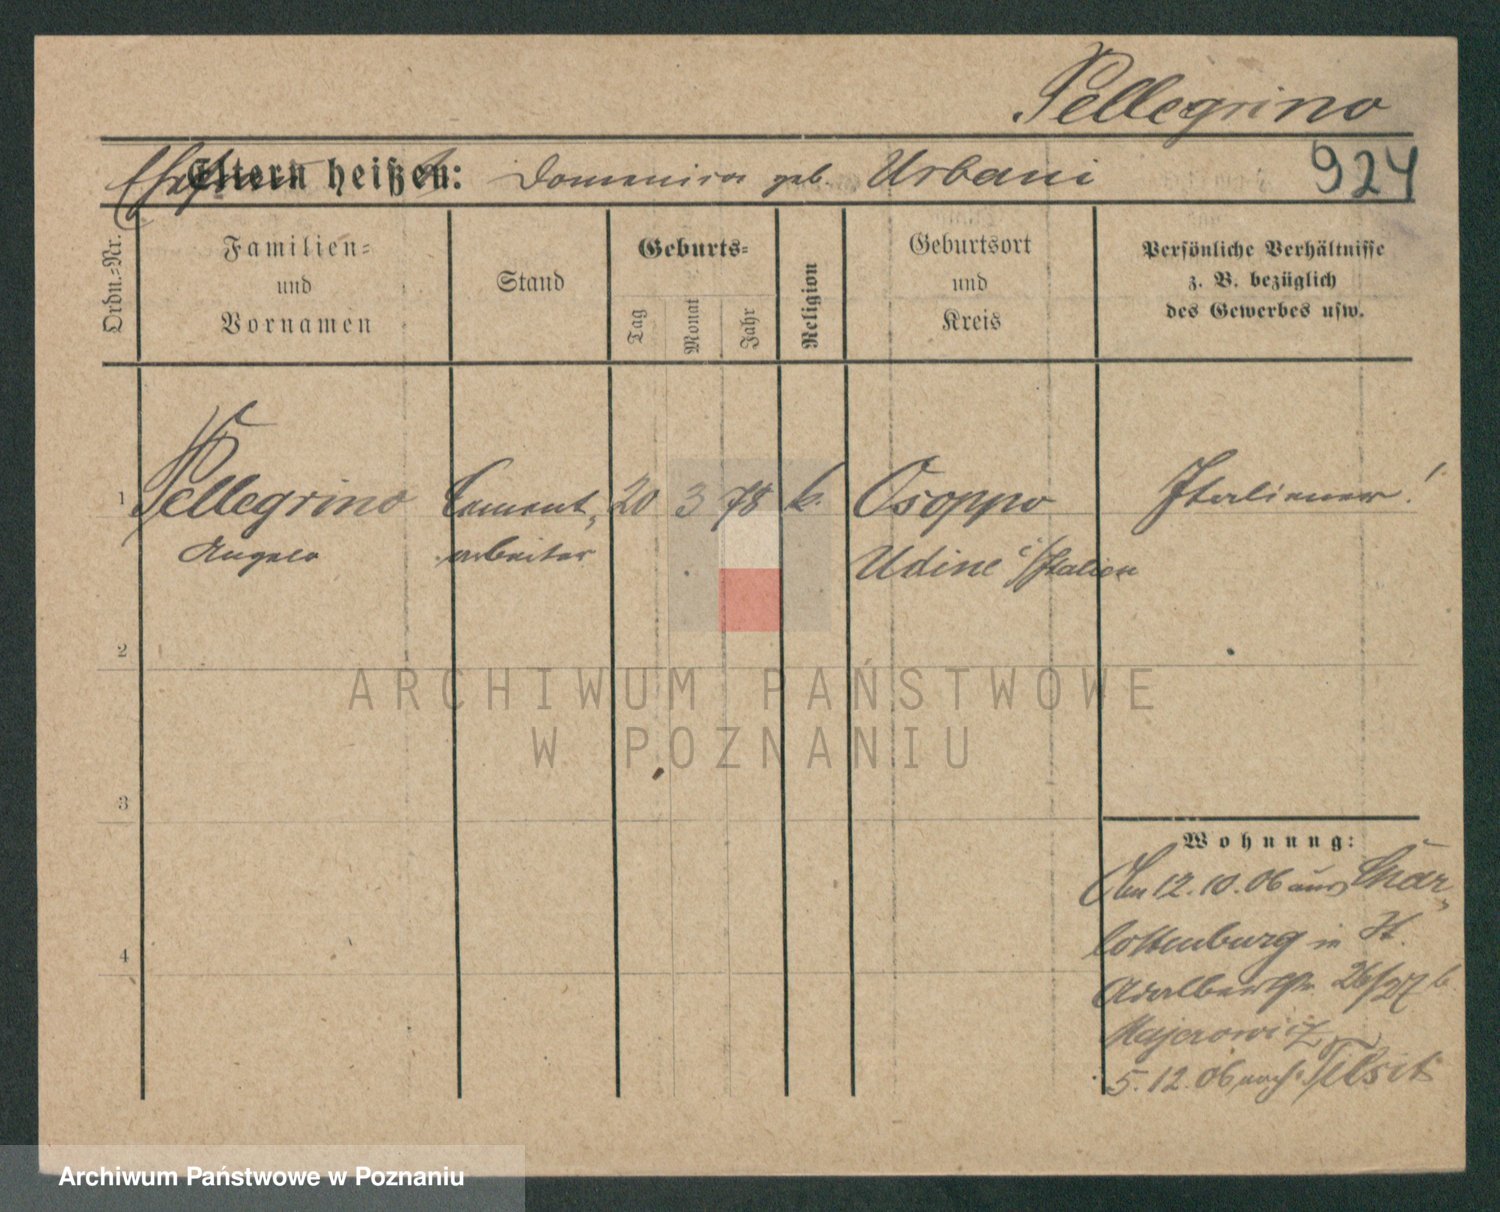 Pellegrino
Ehefrau Eltern heißen: Domenica geb. Urbani 924
Ordn.-Nr.
Familien-
und
Vornamen
Stand
Geburts-
Tag
Monat
Jahr
Religion
Geburtsort
und
Kreis
Persönliche Verhältnisse
z. B. bezüglich
des Gewerbes usw.
1 Pellegrino Cement- 20 3 78 k. Osoppo Italiener!
Angelo arbeiter Udine i/Italien
2
ARCHIWUM PAŃSTWOWE
W POZNANIU
3
Wohnung:
Am 12.10.06 aus Char-
lottenburg in St.
4
Adalbertstr. 26/27 b.
Majerowicz
5.12.06 nach Tilsit
Archiwum Państwowe w Poznaniu